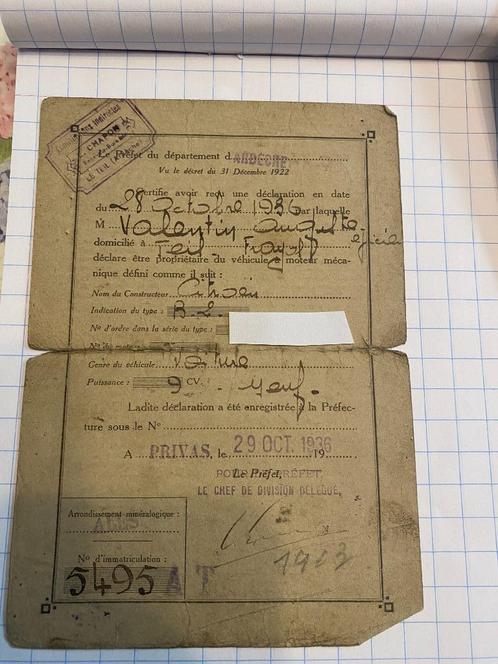 CHAPON
Le Préfet du département d ARDECHE
Vu le décret du 31 Décembre 1922
Certifie avoir reçu une déclaration en date
du 28 octobre 1936 par laquelle
M Valentin Auguste
domicilié à Teil
déclare être propriétaire du véhicule à moteur méca-
nique défini comme il suit :
Nom du Constructeur Citroën
Indication du type : B.2.
N° d'ordre dans la série du type :
N° du moteur :
Genre du véhicule : Voiture
Puissance : 9 CV. neuf.
Ladite déclaration a été enregistrée à la Préfec-
ture sous le N°
A PRIVAS, le 29 OCT. 1936 19
POUR LE PRÉFET,
Le Préfet,
LE CHEF DE DIVISION DELEGUE,
Arrondissement minéralogique :
ALES
N° d'immatriculation :
5495 AT